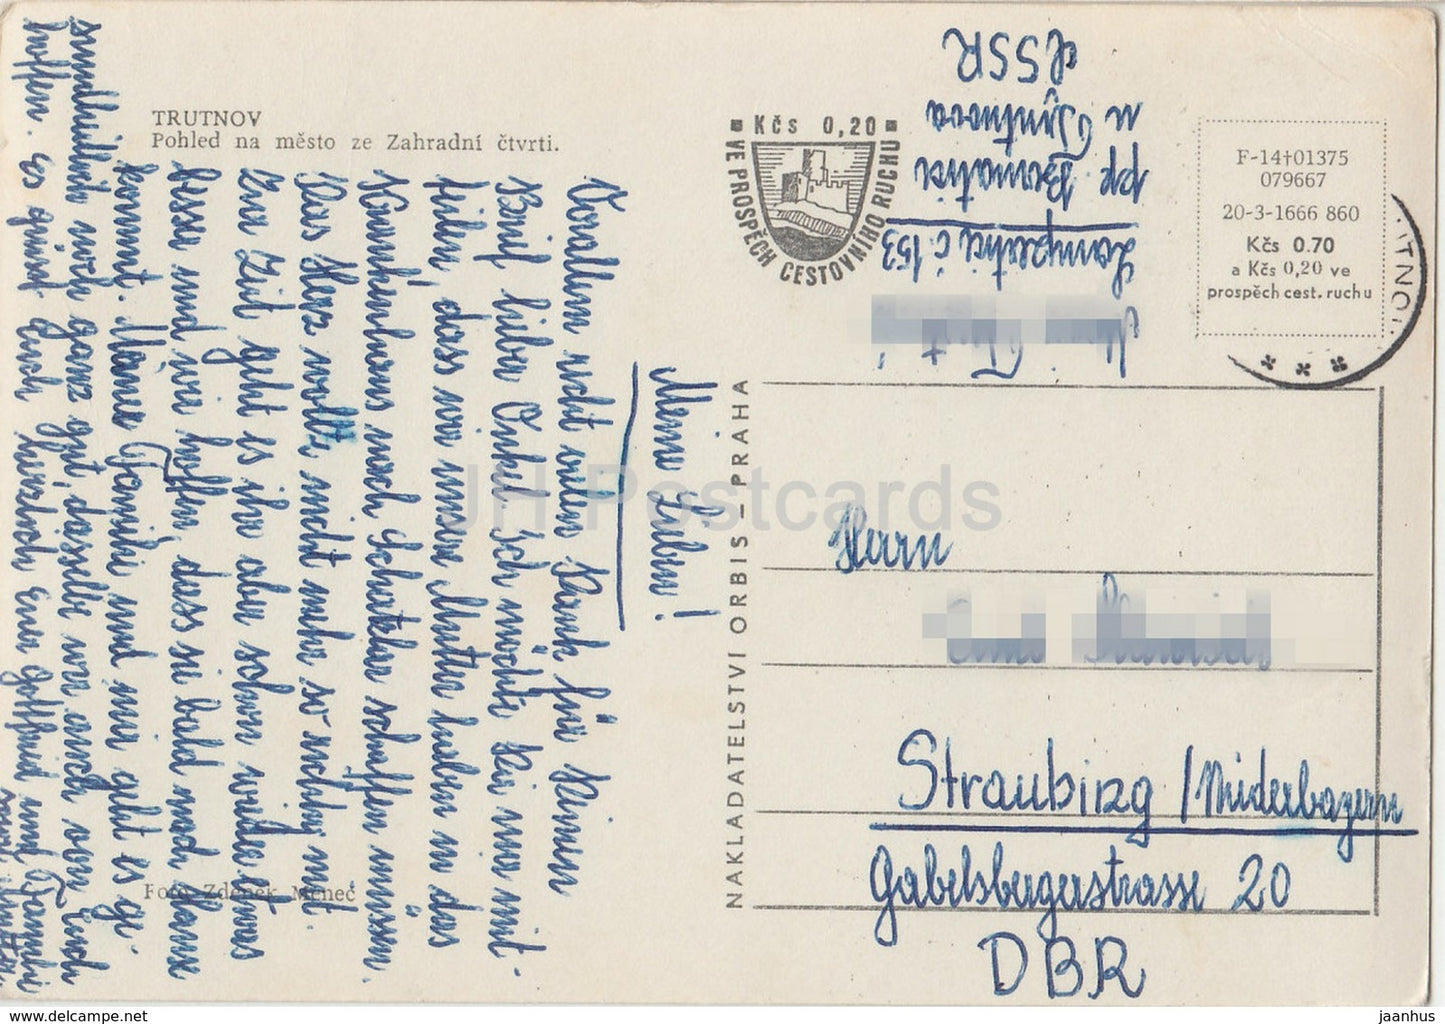 TRUTNOV
Pohled na město ze Zahradní čtvrti.
Foto Zdeněk Menec
Meine Lieben!
Vorallem recht vielen Dank für Deinen
Brief lieber Onkel. Ich möchte Dir nur mit-
teilen, dass wir unsere Mutter haben in das
Krankenhaus nach Schatzlar schaffen müssen.
Das Herz wollte nicht mehr so richtig mit.
Zur Zeit geht es ihr aber schon wieder etwas
besser und wir hoffen, dass sie bald nach Hause
kommt. Meiner Familie und mir geht es ge-
sundheitlich noch ganz gut, dasselbe wir auch von Euch
hoffen. Es grüsst Euch herzlich Euer Gottfried und Familie
und Mutter
NAKLADATELSTVÍ ORBIS – PRAHA
Kčs 0,20
VE PROSPĚCH CESTOVNÍHO RUCHU
č 153
pp
u Trutnova
ČSSR
F-14†01375
079667
20-3-1666 860
Kčs 0.70
a Kčs 0,20 ve
prospěch cest. ruchu
Herrn
Straubing / Niederbayern
Gabelsbergerstrasse 20
DBR
JH Postcards
www.delcampe.net
jaanhus